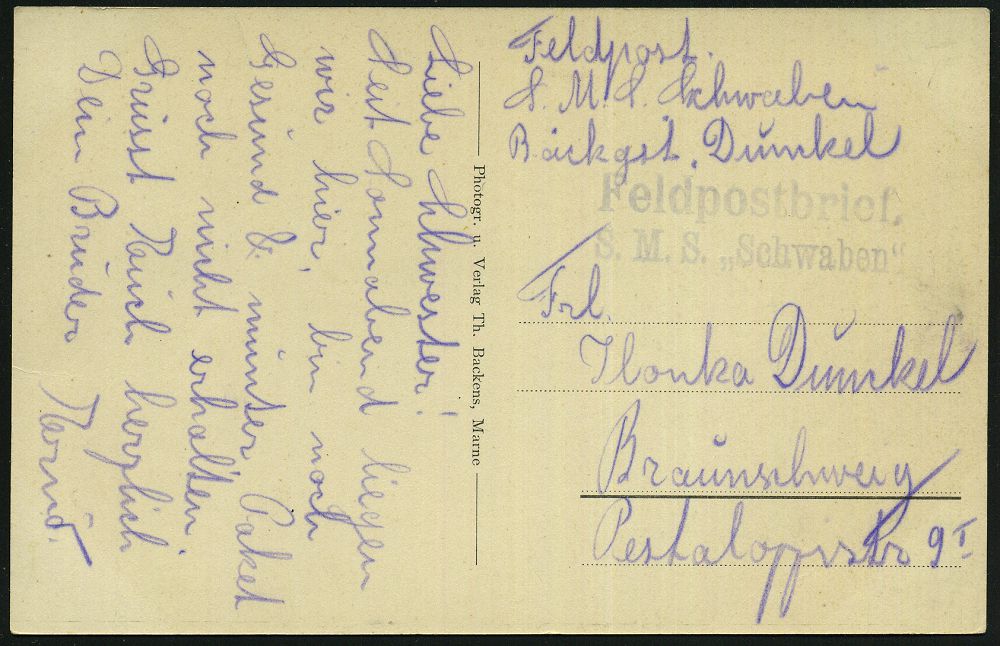 Liebe Schwester!
Seit Sonnabend liegen
wir hier, bin noch
Gesund & munter, Paket
noch nicht erhalten.
Grüsst Euch herzlich
Dein Bruder
Photogr. u. Verlag Th. Backens, Marne
Feldpost.
S. M. S. Schwaben
Dunkel
Feldpostbrief.
S. M. S. „Schwaben“
Frl.
Ilonka Dunkel
Braunschweig
9 I